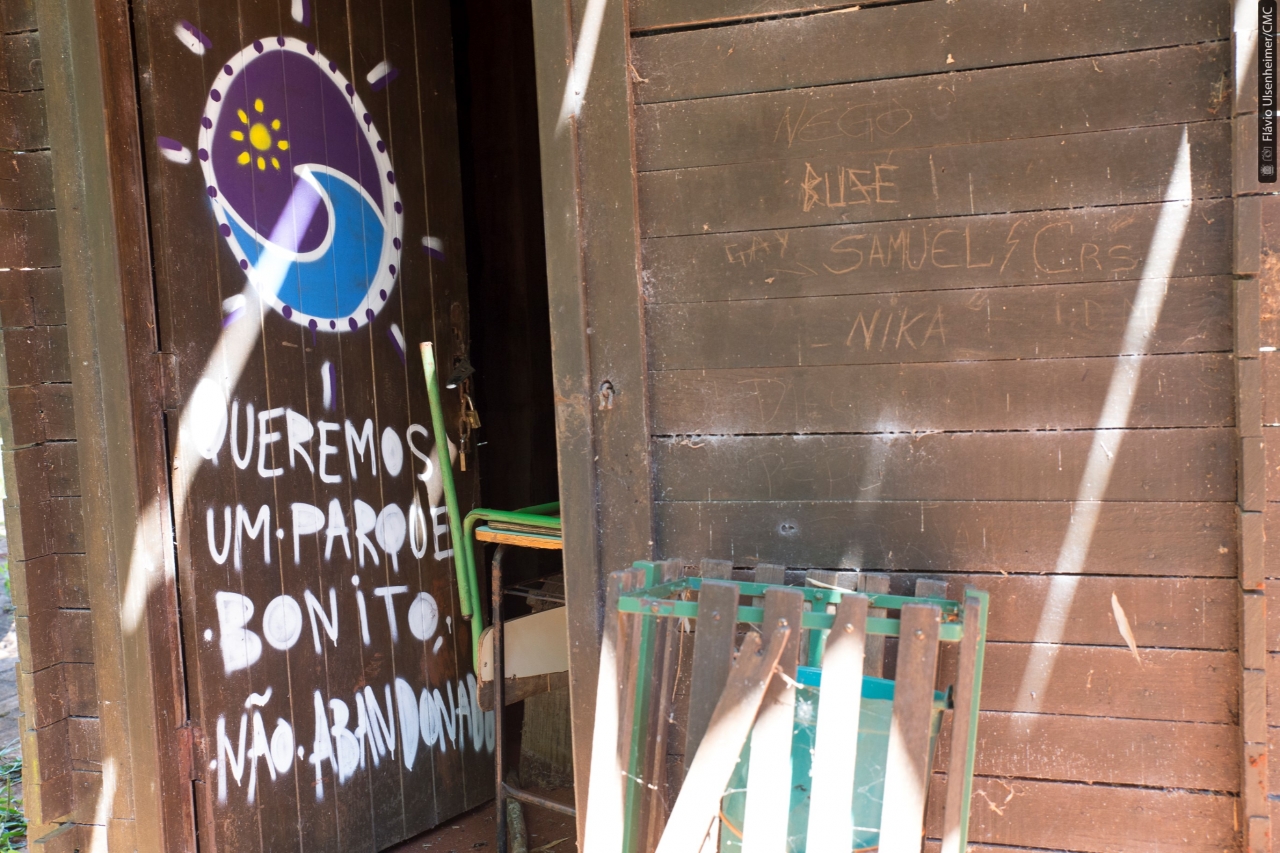 QUEREMOS
UM·PARQUE
·BONITO,
NÃO·ABANDONADO
NEGO
BUSÉ
GAY SAMUEL
NIKA
Flávio Ulsenheimer/CMC